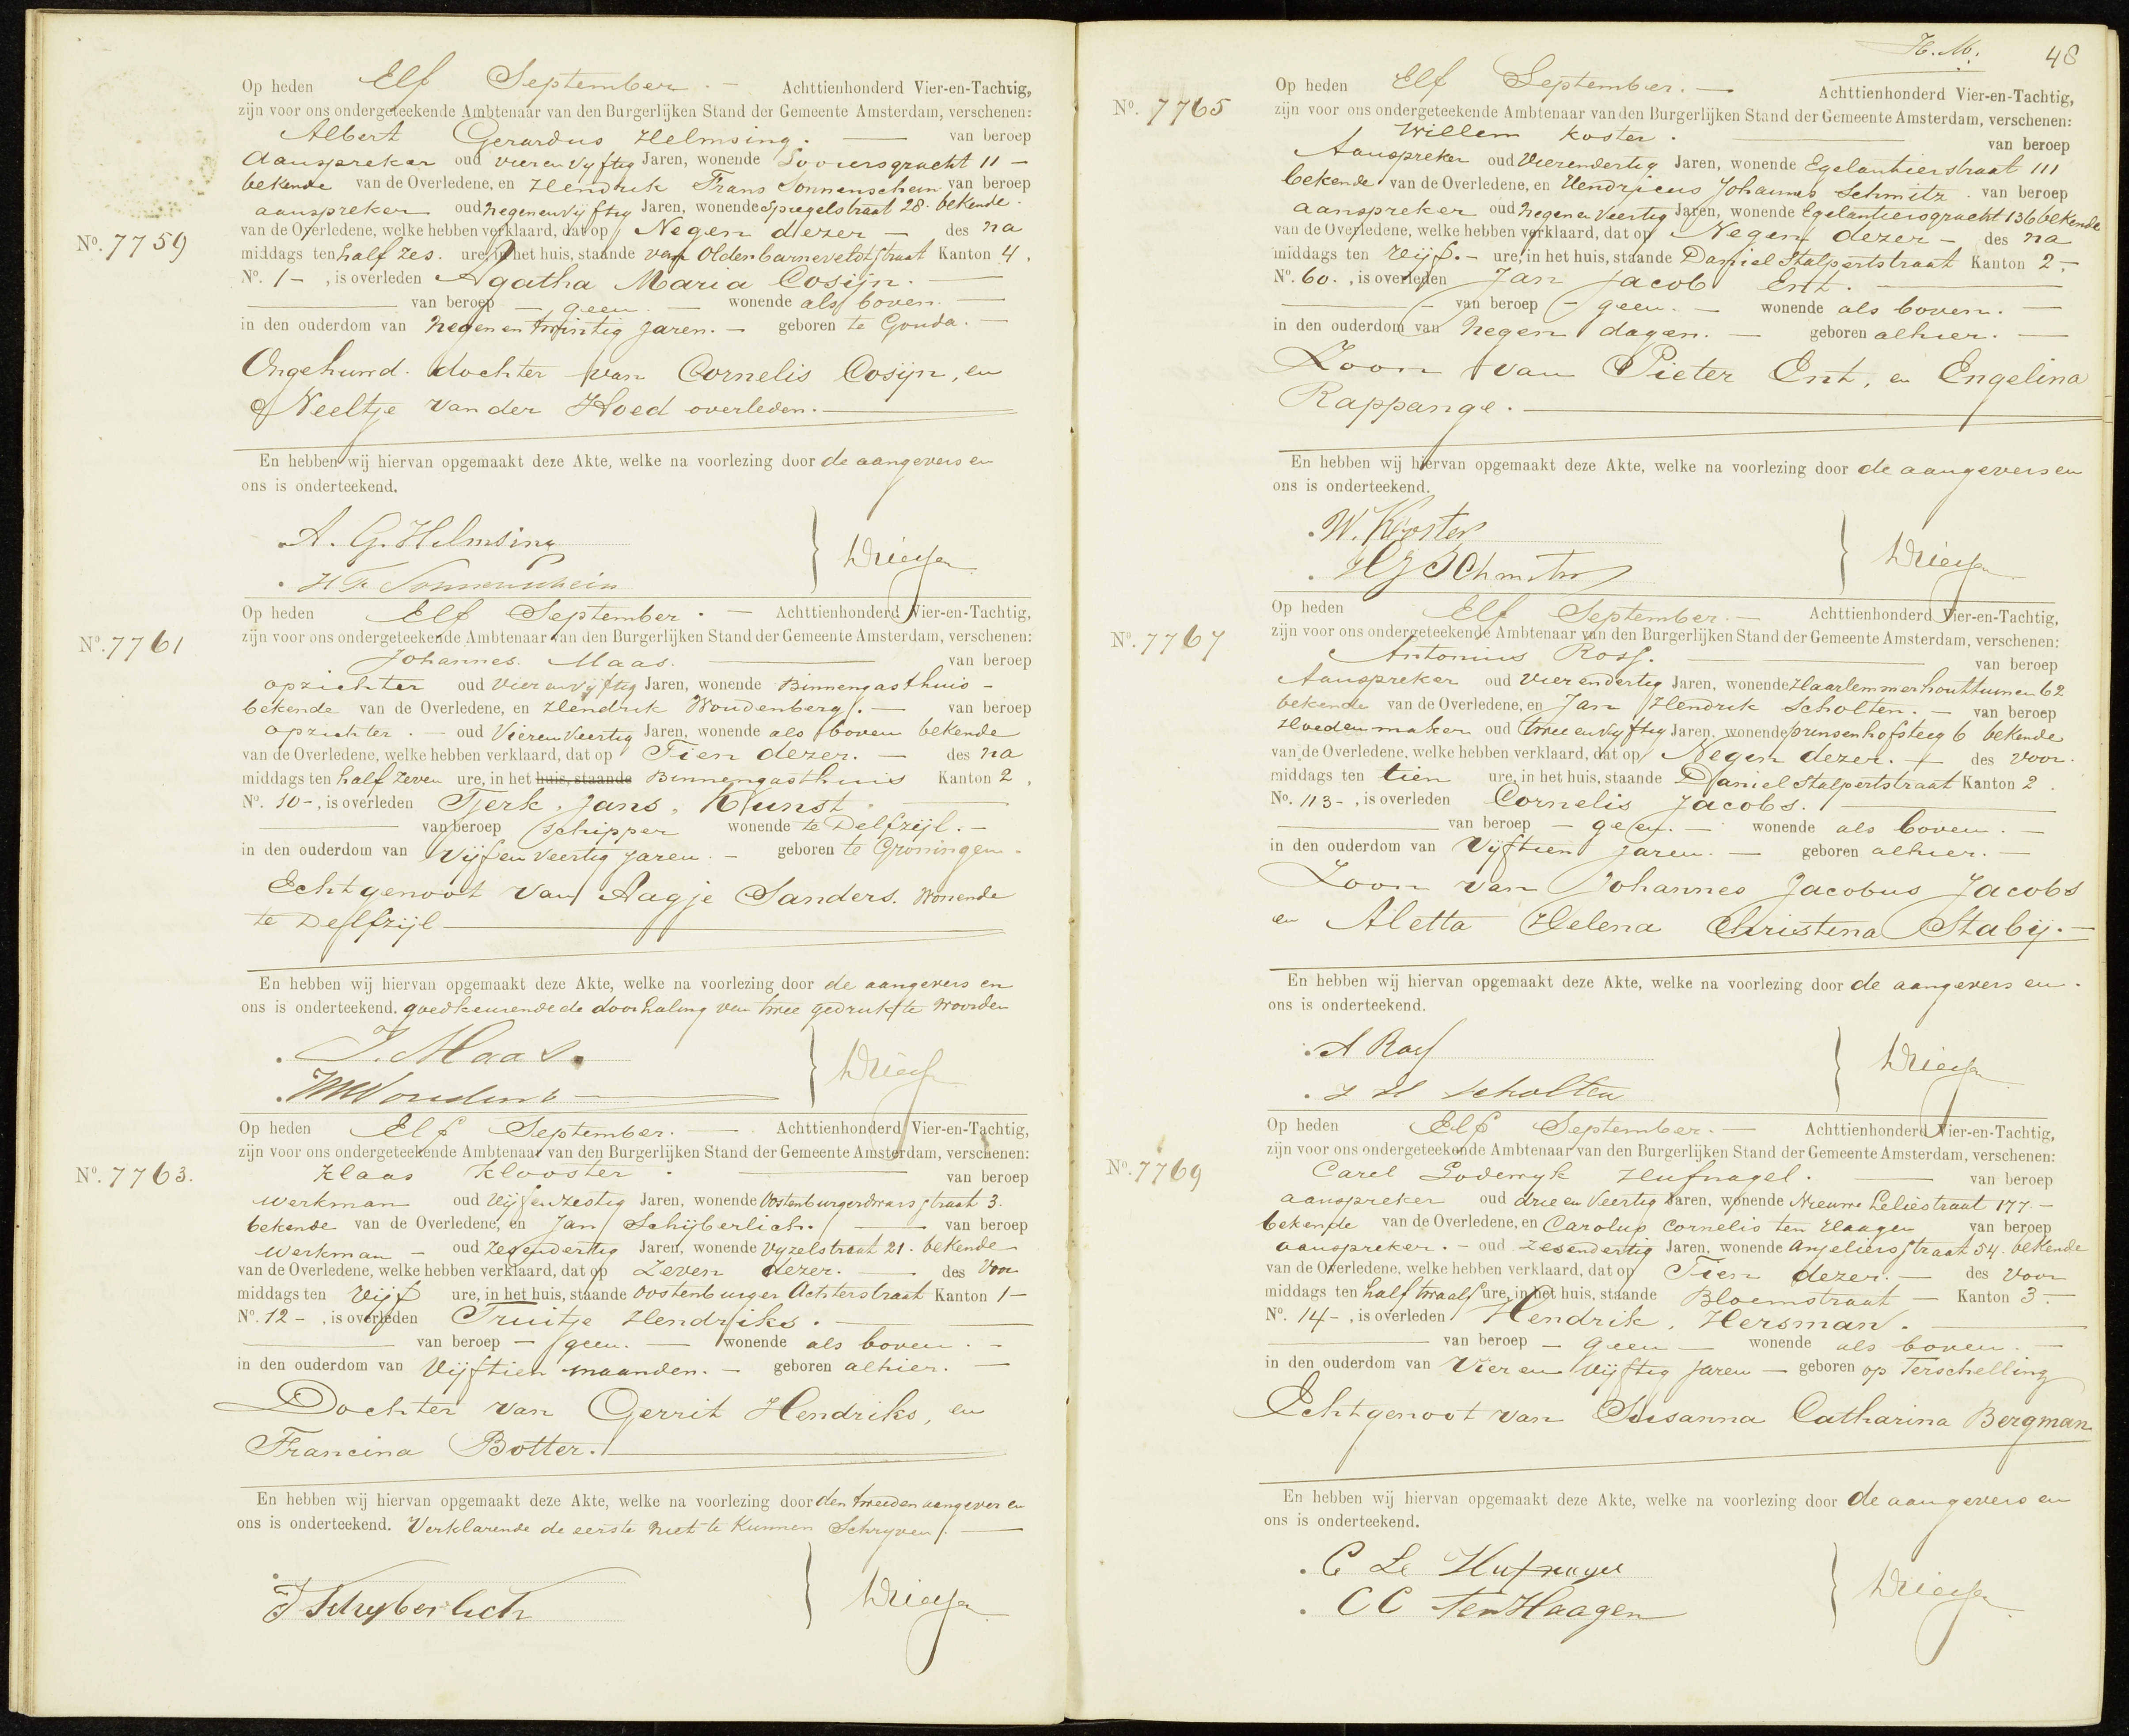 Nº. 7759
Op heden Elf September. — Achttienhonderd Vier-en-Tachtig,
zijn voor ons ondergeteekende Ambtenaar van den Burgerlijken Stand der Gemeente Amsterdam, verschenen:
Albert Gerardus Helmsing. — van beroep
Aanspreker oud vierenvyftig Jaren, wonende Looiersgracht 11 —
bekende van de Overledene, en Hendrik Frans Sonnenschein van beroep
aanspreker oud negenenvijftig Jaren, wonende Spiegelstraat 28. bekende.
van de Overledene, welke hebben verklaard, dat op Negen dezer — des na
middags ten half zes. ure, in het huis, staande van Oldenbarneveldtstraat Kanton 4.
Nº. 1 — , is overleden Agatha Maria Cosijn. —
— van beroep — geen. — wonende als boven. —
in den ouderdom van negen en twintig jaren. — geboren te Gouda. —
Ongehuwd. dochter van Cornelis Cosijn, en
Neeltje van der Hoed overleden. —
En hebben wij hiervan opgemaakt deze Akte, welke na voorlezing door de aangevers en
ons is onderteekend.
A. G. Helmsing
H F Sonnenschein
Nº. 7761
Op heden Elf September. — Achttienhonderd Vier-en-Tachtig,
zijn voor ons ondergeteekende Ambtenaar van den Burgerlijken Stand der Gemeente Amsterdam, verschenen:
Johannes Maas. — van beroep
opzichter oud vierenvyftig Jaren, wonende Binnengasthuis —
bekende van de Overledene, en Hendrik Woudenberg. — van beroep
opzichter. — oud Vierenveertig Jaren, wonende als boven bekende
van de Overledene, welke hebben verklaard, dat op Tien dezer. — des na
middags ten half zeven ure, in het huis, staande Binnengasthuis Kanton 2,
Nº. 10 —, is overleden Tjerk Jans Kunst —
— van beroep schipper wonende te Delfzijl. —
in den ouderdom van Vijfenveertig jaren. — geboren te Groningen —
Echtgenoot van Aagje Sanders. wonende
te Delfzijl —
En hebben wij hiervan opgemaakt deze Akte, welke na voorlezing door de aangevers en
ons is onderteekend. goedkeurende de doorhaling van twee gedrukte woorden
J. Maas.
Nº. 7763.
Op heden Elf September. — Achttienhonderd Vier-en-Tachtig,
zijn voor ons ondergeteekende Ambtenaar van den Burgerlijken Stand der Gemeente Amsterdam, verschenen:
Klaas Klooster. — van beroep
werkman oud vijfenzestig Jaren, wonende Oostenburgerdwarsstraat 3.
bekende van de Overledene, en Jan Schijberlich. — van beroep
werkman — oud zesendertig Jaren, wonende Vyzelstraat 21. bekende
van de Overledene, welke hebben verklaard, dat op Zeven dezer. — des Voor
middags ten Vijf ure, in het huis, staande Oostenburger Achterstraat Kanton 1 —
Nº. 12 — , is overleden Truitje Hendriks. —
— van beroep — geen. — wonende als boven. —
in den ouderdom van Vijftien maanden. — geboren alhier. —
Dochter van Gerrit Hendriks, en
Francina Botter. —
En hebben wij hiervan opgemaakt deze Akte, welke na voorlezing door den tweeden aangever en
ons is onderteekend. Verklarende de eerste niet te kunnen Schryven. —
J Schyberlich
H. M. 48
Nº. 7765
Op heden Elf September. — Achttienhonderd Vier-en-Tachtig,
zijn voor ons ondergeteekende Ambtenaar van den Burgerlijken Stand der Gemeente Amsterdam, verschenen:
Willem Koster. — van beroep
Aanspreker oud Vierendertig Jaren, wonende Egelantierstraat 111
bekende van de Overledene, en Hendricus Johannes Schmitz. van beroep
aanspreker oud negenenveertig Jaren, wonende Egelantiersgracht 136 bekende
van de Overledene, welke hebben verklaard, dat op Negen dezer — des na
middags ten Vijf. — ure, in het huis, staande Daniel Stalpertstraat Kanton 2. —
Nº. 60. , is overleden Jan Jacob Ent. —
— van beroep — geen. — wonende als boven. —
in den ouderdom van negen dagen. — geboren alhier. —
Zoon van Pieter Ent, en Engelina
Rappange. —
En hebben wij hiervan opgemaakt deze Akte, welke na voorlezing door de aangevers en
ons is onderteekend.
W. Koster
HJ Schmitz
Nº. 7767
Op heden Elf September. — Achttienhonderd Vier-en-Tachtig,
zijn voor ons ondergeteekende Ambtenaar van den Burgerlijken Stand der Gemeente Amsterdam, verschenen:
Antonius Ross. — van beroep
Aanspreker oud Vierendertig Jaren, wonende Haarlemmerhouttuinen 62
bekende van de Overledene, en Jan Hendrik Scholten. — van beroep
Hoedenmaker oud tweeenvyftig Jaren, wonende prinsenhofsteeg 6 bekende
van de Overledene, welke hebben verklaard, dat op Negen dezer. — des voor.
middags ten tien ure, in het huis, staande Daniel Stalpertstraat Kanton 2.
No. 113 — , is overleden Cornelis Jacobs. —
— van beroep — geen. — wonende als boven. —
in den ouderdom van Vijftien jaren. — geboren alhier. —
Zoon van Johannes Jacobus Jacobs
en Aletta Helena Christina Stabij. —
En hebben wij hiervan opgemaakt deze Akte, welke na voorlezing door de aangevers en.
ons is onderteekend.
A Ross
J H Scholten
Nº. 7769
Op heden Elf September. — Achttienhonderd Vier-en-Tachtig,
zijn voor ons ondergeteekende Ambtenaar van den Burgerlijken Stand der Gemeente Amsterdam, verschenen:
Carel Lodewyk Hufnagel. — van beroep
aanspreker oud drie en Veertig Jaren, wonende Nieuwe Leliestraat 177. —
bekende van de Overledene, en Carolus Cornelis ten Haagen van beroep
aanspreker. — oud zesendertig Jaren, wonende Anjeliersstraat 54. bekende
van de Overledene, welke hebben verklaard, dat op Tien dezer. — des Voor
middags ten half twaalf ure, in het huis, staande Bloemstraat — Kanton 3. —
Nº. 14 — , is overleden Hendrik Hersman. —
— van beroep — geen — wonende als boven. —
in den ouderdom van Vier en Vijftig jaren — geboren op Terschelling
Echtgenoot van Susanna Catharina Bergman
En hebben wij hiervan opgemaakt deze Akte, welke na voorlezing door de aangevers en
ons is onderteekend.
C L Hufnagel
CC ten Haagen